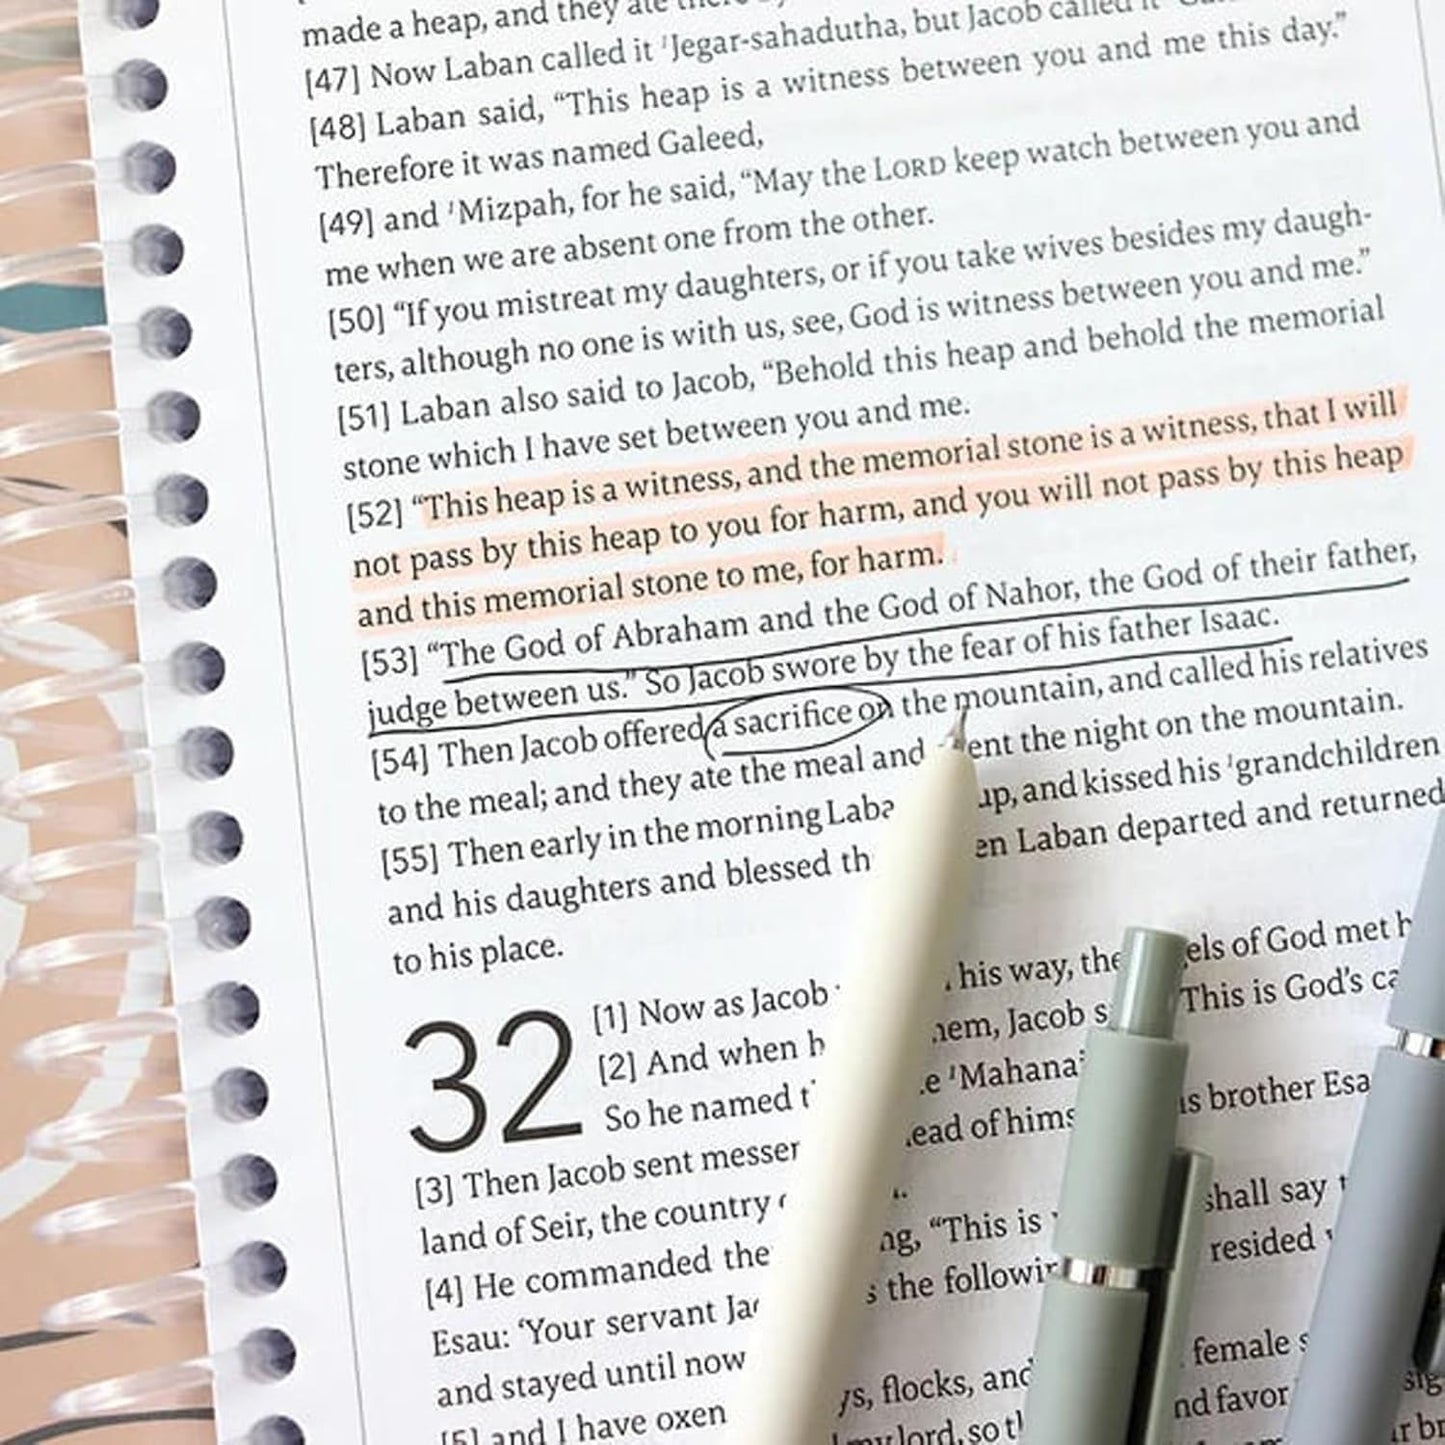 made a heap, and they ate
[47] Now Laban called it ᴵJegar-sahadutha, but Jacob called it
[48] Laban said, “This heap is a witness between you and me this day.”
Therefore it was named Galeed,
[49] and ᴵMizpah, for he said, “May the LORD keep watch between you and
me when we are absent one from the other.
[50] “If you mistreat my daughters, or if you take wives besides my daugh-
ters, although no one is with us, see, God is witness between you and me.”
[51] Laban also said to Jacob, “Behold this heap and behold the memorial
stone which I have set between you and me.
[52] “This heap is a witness, and the memorial stone is a witness, that I will
not pass by this heap to you for harm, and you will not pass by this heap
and this memorial stone to me, for harm.
[53] “The God of Abraham and the God of Nahor, the God of their father,
judge between us.” So Jacob swore by the fear of his father Isaac.
[54] Then Jacob offered a sacrifice on the mountain, and called his relatives
to the meal; and they ate the meal and ent the night on the mountain.
[55] Then early in the morning Laba up, and kissed his ᴵgrandchildren
and his daughters and blessed th en Laban departed and returned
to his place.
32
[1] Now as Jacob his way, the els of God met h
[2] And when h hem, Jacob s This is God’s ca
So he named t e ᴵMahana
[3] Then Jacob sent messen ead of hims is brother Esa
land of Seir, the country
[4] He commanded the ng, “This is shall say
Esau: ‘Your servant Jac s the followin resided
and stayed until now
[5] and I have oxen ys, flocks, and female s
my lord, so th nd favor